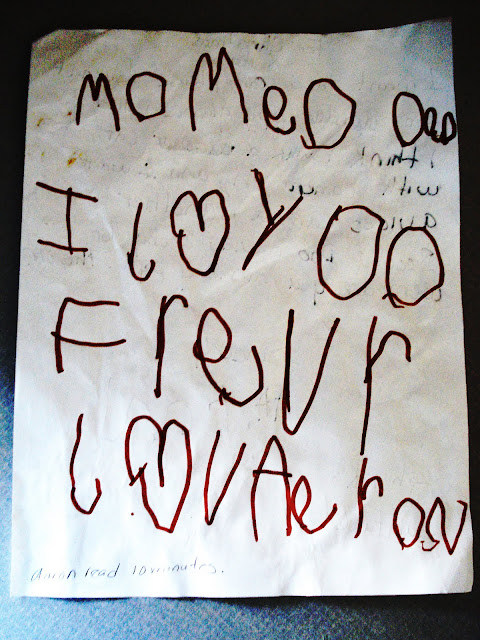 MOMeD DaD
I L♥Y OO
FreVr
L♥V AerON
Aaron read 10 minutes.